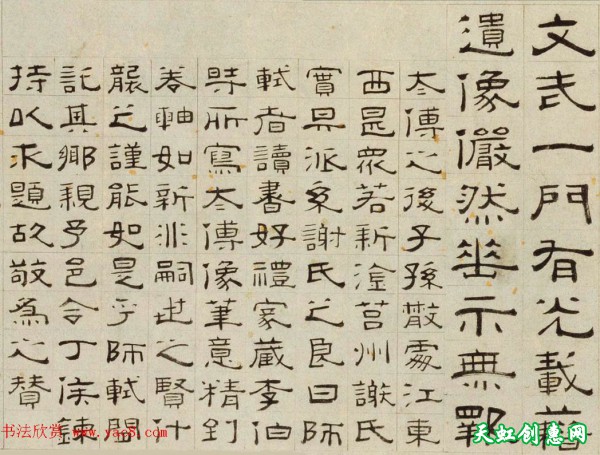 文武一門有光載籍
遺像儼然垂示無斁
太傅之後子孫散處江東
西是衆若新淦莒州謝氏
實其派系謝氏之良曰師
軾者讀書好禮家藏李伯
時所寫太傅像筆意精到
卷軸如新非嗣世之賢什
襲之謹能如是乎師軾間
託其鄉親予邑令丁鍊
持以求題故敬為之贊
书法欣赏 www.yac8.com
天虹创意网